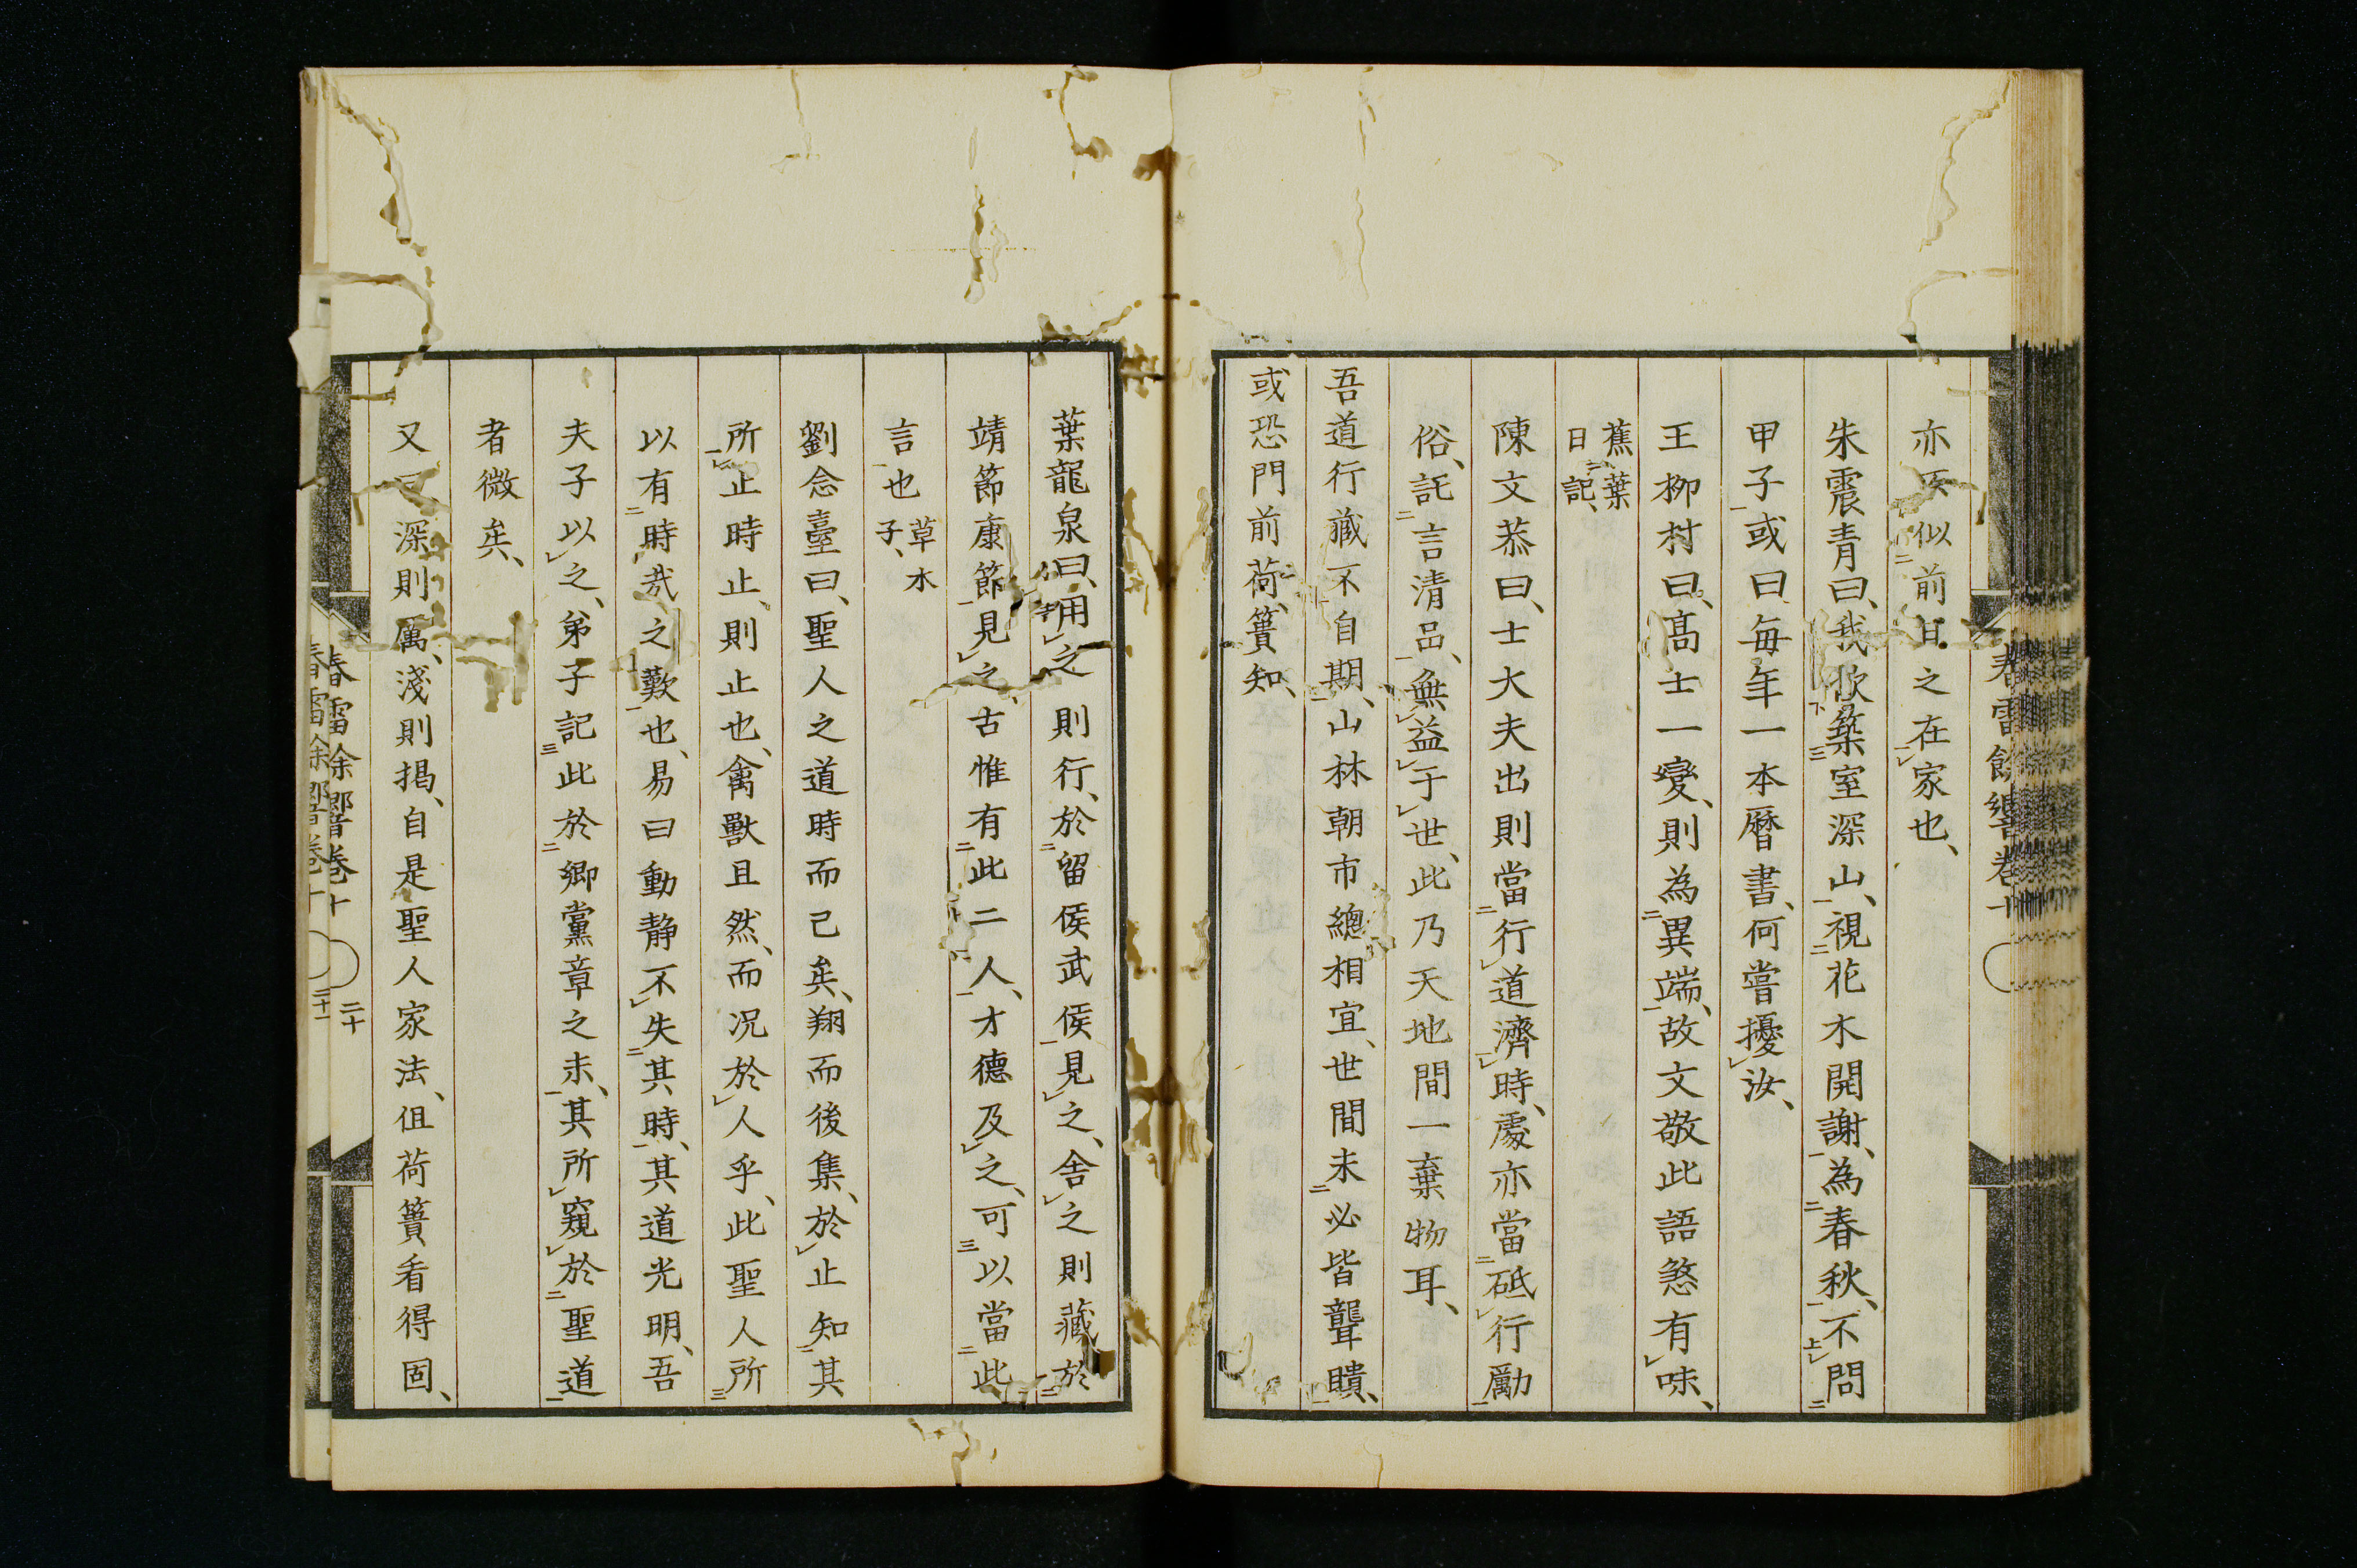 亦須似前日之在家也、
朱震青曰、我欲築室深山、視花木開謝、為春秋、不問
甲子、或曰每年一本曆書、何嘗擾汝、
王柳村曰、高士一變、則為異端、故文敬此語煞有味、
蕉葉
日記、
陳文恭曰、士大夫出則當行道濟時、處亦當砥行勵
俗、託言清品、無益于世、此乃天地間一棄物耳、
吾道行藏不自期、山林朝市總相宜、世間未必皆聾聵、
或恐門前荷蕢知、
春雷餘響卷十
葉龍泉曰、用之則行、於留侯武侯見之、舍之則藏於
靖節康節見之、古惟有此二人、才德及之、可以當此
言也
草木
子、
劉念臺曰、聖人之道時而已矣、翔而後集、於止知其
所止時止、則止也、禽獸且然、而况於人乎、此聖人所
以有時哉之歎也、易曰動静不失其時、其道光明、吾
夫子以之、弟子記此於鄉黨章之末、其所窺於聖道
者微矣、
又曰深則厲、淺則揭、自是聖人家法、但荷蕢看得固、
春雷餘響卷十
二十
春雷餘響卷十
二十一